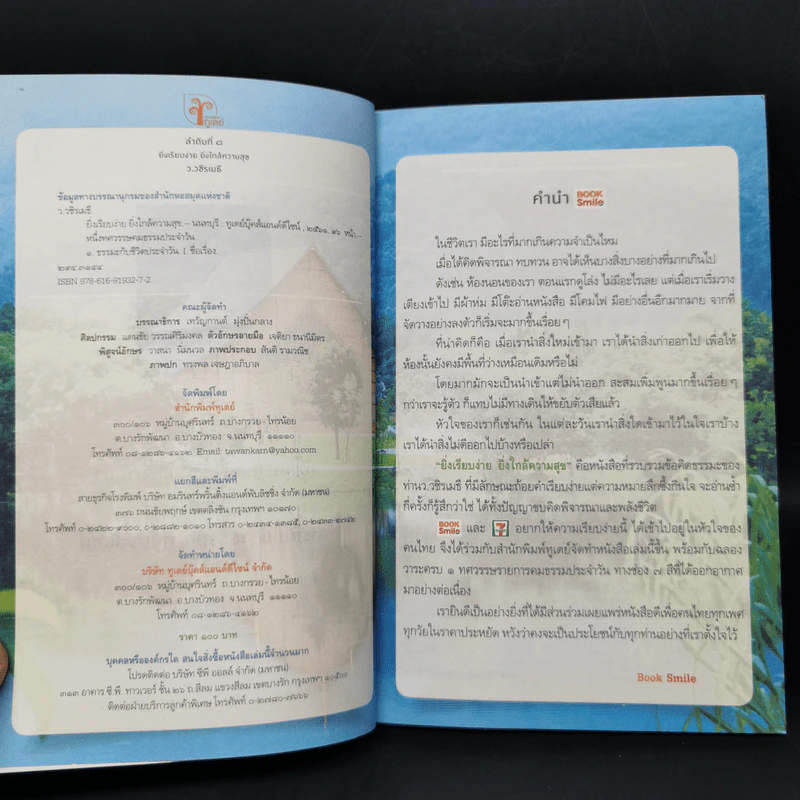 ทูเดย์
ลำดับที่ ๘
ยิ่งเรียบง่าย ยิ่งใกล้ความสุข
ว.วชิรเมธี
ข้อมูลทางบรรณานุกรมของสำนักหอสมุดแห่งชาติ
ว.วชิรเมธี
ยิ่งเรียบง่าย ยิ่งใกล้ความสุข.-- นนทบุรี : ทูเดย์บุ๊คส์แอนด์ดีไซน์ , ๒๕๖๑. ๙๖ หน้า.--
หนึ่งทศวรรษคมธรรมประจำวัน
๑. ธรรมะกับชีวิตประจำวัน I. ชื่อเรื่อง.
๒๙๔.๓๑๔๔
ISBN 978-616-91932-7-2
คณะผู้จัดทำ
บรรณาธิการ เทวัญกานต์ มุ่งปั่นกลาง
ศิลปกรรม แดนชัย วรรณศิริมงคล ตัวอักษรลายมือ เจติยา ธนานิมิตร
พิสูจน์อักษร วาสนา นิ่มนวล ภาพประกอบ สันติ รามวณิช
ภาพปก ทรงพล เจษฎาอภิบาล
จัดพิมพ์โดย
สำนักพิมพ์ทูเดย์
๓๐๐/๑๐๖ หมู่บ้านบุศรินทร์ ถ.บางกรวย-ไทรน้อย
ต.บางรักพัฒนา อ.บางบัวทอง จ.นนทบุรี ๑๑๑๑๐
โทรศัพท์ ๐๘-๑๒๘๖-๔๑๖๒ Email: tawankarn@yahoo.com
แยกสีและพิมพ์ที่
สายธุรกิจโรงพิมพ์ บริษัท อมรินทร์พริ้นติ้งแอนด์พับลิชชิ่ง จำกัด (มหาชน)
๓๗๖ ถนนชัยพฤกษ์ เขตตลิ่งชัน กรุงเทพฯ ๑๐๑๗๐
โทรศัพท์ ๐-๒๔๒๒-๙๐๐๐, ๐-๒๘๘๒-๑๐๑๐ โทรสาร ๐-๒๔๓๓-๒๗๔๒, ๐-๒๔๓๔-๑๓๘๕
จัดจำหน่ายโดย
บริษัท ทูเดย์บุ๊คส์แอนด์ดีไซน์ จำกัด
๓๐๐/๑๐๖ หมู่บ้านบุศรินทร์ ถ.บางกรวย-ไทรน้อย
ต.บางรักพัฒนา อ.บางบัวทอง จ.นนทบุรี ๑๑๑๑๐
โทรศัพท์ ๐๘-๑๒๘๖-๔๑๖๒
ราคา ๑๐๐ บาท
บุคคลหรือองค์กรใด สนใจสั่งซื้อหนังสือเล่มนี้จำนวนมาก
โปรดติดต่อ บริษัท ซีพี ออลล์ จำกัด (มหาชน)
๓๑๓ อาคาร ซี.พี. ทาวเวอร์ ชั้น ๒๖ ถ.สีลม แขวงสีลม เขตบางรัก กรุงเทพฯ ๑๐๕๐๐
ติดต่อฝ่ายบริการลูกค้าพิเศษ โทรศัพท์ ๐-๒๗๘๐-๗๖๖๖
คำนำ BOOK Smile
ในชีวิตเรา มีอะไรที่มากเกินความจำเป็นไหม
เมื่อได้คิดพิจารณา ทบทวน อาจได้เห็นบางสิ่งบางอย่างที่มากเกินไป
ดังเช่น ห้องนอนของเรา ตอนแรกดูโล่ง ไม่มีอะไรเลย แต่เมื่อเราเริ่มวาง
เตียงเข้าไป มีผ้าห่ม มีโต๊ะอ่านหนังสือ มีโคมไฟ มีอย่างอื่นอีกมากมาย จากที่
จัดวางอย่างลงตัวก็เริ่มจะมากขึ้นเรื่อยๆ
ที่น่าคิดก็คือ เมื่อเรานำสิ่งใหม่เข้ามา เราได้นำสิ่งเก่าออกไป เพื่อให้
ห้องนั้นยังคงมีพื้นที่ว่างเหมือนเดิมหรือไม่
โดยมากมักจะเป็นนำเข้าแต่ไม่นำออก สะสมเพิ่มพูนมากขึ้นเรื่อยๆ
กว่าเราจะรู้ตัว ก็แทบไม่มีทางเดินให้ขยับตัวเสียแล้ว
หัวใจของเราก็เช่นกัน ในแต่ละวันเรานำสิ่งใดเข้ามาไว้ในใจเราบ้าง
เราได้นำสิ่งไม่ดีออกไปบ้างหรือเปล่า
"ยิ่งเรียบง่าย ยิ่งใกล้ความสุข" คือหนังสือที่รวบรวมข้อคิดธรรมะของ
ท่านว.วชิรเมธี ที่มีลักษณะถ้อยคำเรียบง่ายแต่ความหมายลึกซึ้งกินใจ จะอ่านซ้ำ
กี่ครั้งก็รู้สึกว่าใช่ ได้ทั้งปัญญาขบคิดพิจารณาและพลังชีวิต
BOOK Smile และ 7 ELEVEN อยากให้ความเรียบง่ายนี้ ได้เข้าไปอยู่ในหัวใจของ
คนไทย จึงได้ร่วมกับสำนักพิมพ์ทูเดย์จัดทำหนังสือเล่มนี้ขึ้น พร้อมกับฉลอง
วาระครบ ๑ ทศวรรษรายการคมธรรมประจำวัน ทางช่อง ๗ สีที่ได้ออกอากาศ
มาอย่างต่อเนื่อง
เรายินดีเป็นอย่างยิ่งที่ได้มีส่วนร่วมเผยแพร่หนังสือดีเพื่อคนไทยทุกเพศ
ทุกวัยในราคาประหยัด หวังว่าคงจะเป็นประโยชน์กับทุกท่านอย่างที่เราตั้งใจไว้
Book Smile